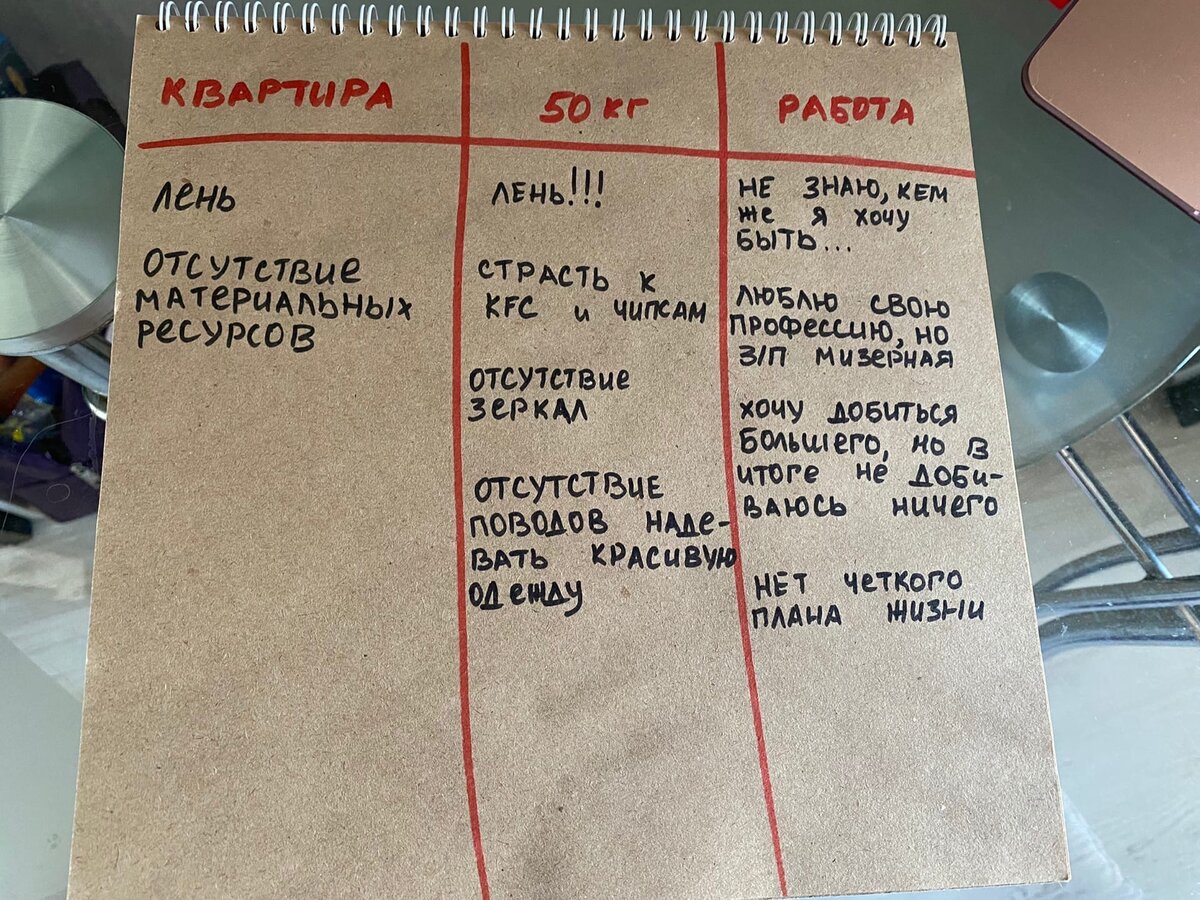 КВАРТИРА
ЛЕНЬ
ОТСУТСТВИЕ
МАТЕРИАЛЬНЫХ
РЕСУРСОВ
50 КГ
ЛЕНЬ!!!
СТРАСТЬ К
KFC И ЧИПСАМ
ОТСУТСТВИЕ
ЗЕРКАЛ
ОТСУТСТВИЕ
ПОВОДОВ НАДЕ-
ВАТЬ КРАСИВУЮ
ОДЕЖДУ
РАБОТА
НЕ ЗНАЮ, КЕМ
ЖЕ Я ХОЧУ
БЫТЬ...
ЛЮБЛЮ СВОЮ
ПРОФЕССИЮ, НО
З/П МИЗЕРНАЯ
ХОЧУ ДОБИТЬСЯ
БОЛЬШЕГО, НО В
ИТОГЕ НЕ ДОБИ-
ВАЮСЬ НИЧЕГО
НЕТ ЧЕТКОГО
ПЛАНА ЖИЗНИ